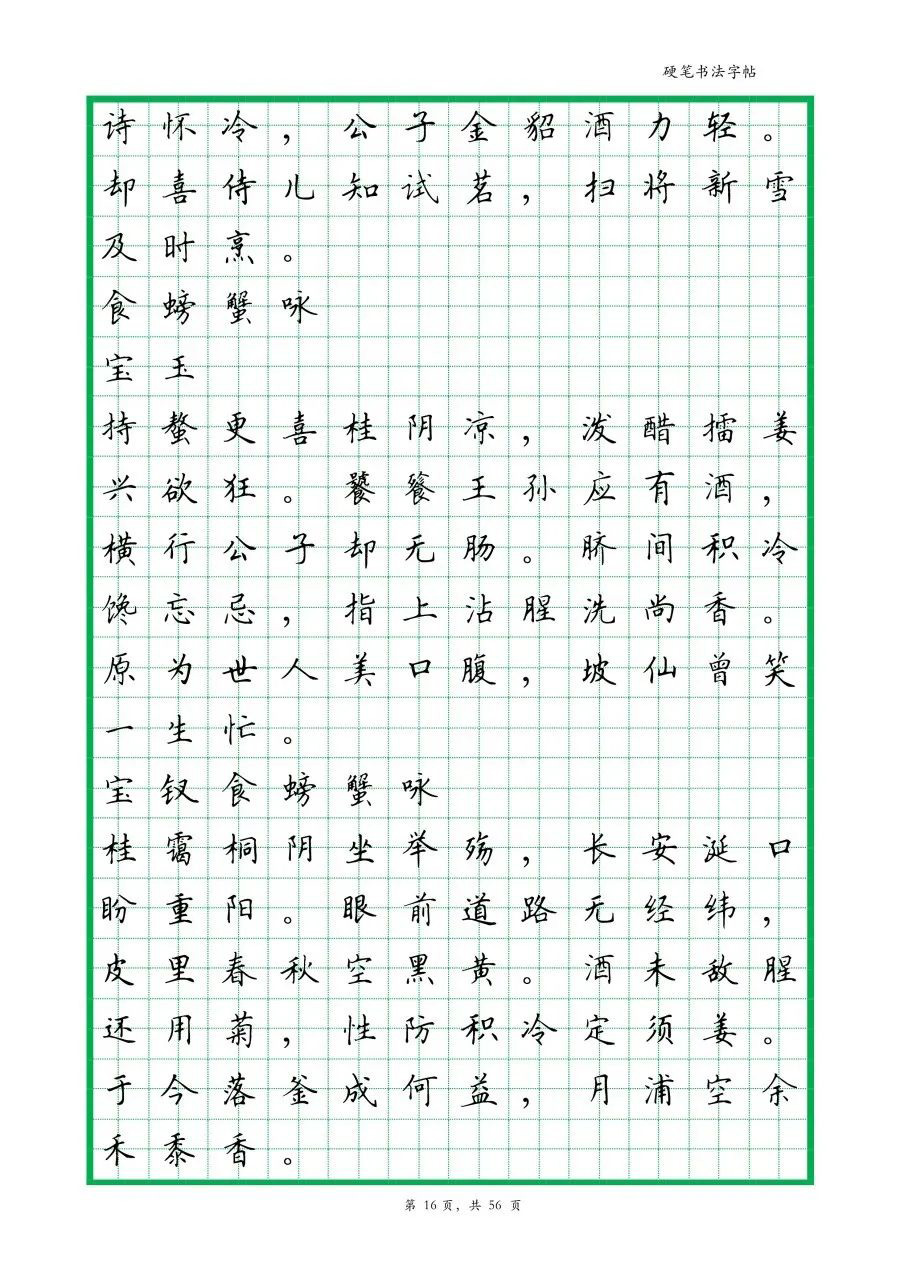 硬笔书法字帖
诗怀冷，公子金貂酒力轻。
却喜侍儿知试茗，扫将新雪
及时烹。
食螃蟹咏
宝玉
持螯更喜桂阴凉，泼醋擂姜
兴欲狂。饕餮王孙应有酒，
横行公子却无肠。脐间积冷
馋忘忌，指上沾腥洗尚香。
原为世人美口腹，坡仙曾笑
一生忙。
宝钗食螃蟹咏
桂霭桐阴坐举殇，长安涎口
盼重阳。眼前道路无经纬，
皮里春秋空黑黄。酒未敌腥
还用菊，性防积冷定须姜。
于今落釜成何益，月浦空余
禾黍香。
第 16 页，共 56 页